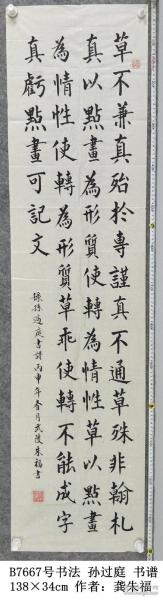 草不兼真殆於專謹真不通草殊非翰札
真以點畫為形質使轉為情性草以點畫
為情性使轉為形質草乖使轉不能成字
真虧點畫可記文
孫過庭書譜丙申年春月武陵朱福書
B7667号书法 孙过庭 书谱
138×34cm 作者：龚朱福